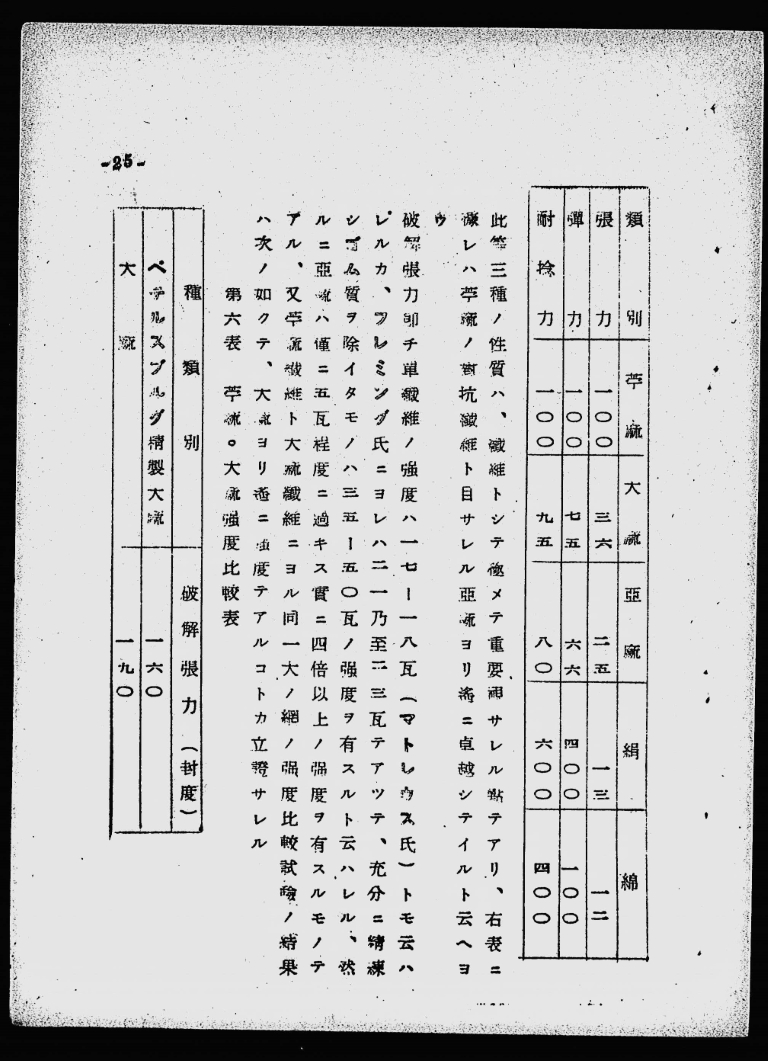 -25-
類別 苧麻 大麻 亞麻 絹 綿
張力 一〇〇 三六 二五 一三 一二
彈力 一〇〇 七五 六六 四〇〇 一〇〇
耐捻力 一〇〇 九五 八〇 六〇〇 四〇〇
此等三種ノ性質ハ、纖維トシテ極メテ重要視サレル點テアリ、右表ニ
據レハ苧麻ノ對抗纖維ト目サレル亞麻ヨリ遙ニ卓越シテイルト云ヘヨ
ウ
破解張力卽チ單纖維ノ强度ハ一七ー一八瓦(マトレウス氏)トモ云ハ
レルカ、フレミング氏ニヨレハ二一乃至二三瓦テアツテ、充分ニ精練
シゴム質ヲ除イタモノハ三五ー五〇瓦ノ强度ヲ有スルト云ハレル、然
ルニ亞麻ハ僅ニ五瓦程度ニ過キス實ニ四倍以上ノ强度ヲ有スルモノテ
アル、又苧麻纖維ト大麻纖維ニヨル同一大ノ網ノ强度比較試驗ノ結果
ハ次ノ如クテ、大麻ヨリ遙ニ强度テアルコトカ立證サレル
第六表 苧麻。大麻强度比較表
種類別 破解張力(封度)
ペテルスブルグ精製大麻 一六〇
大麻 一九〇